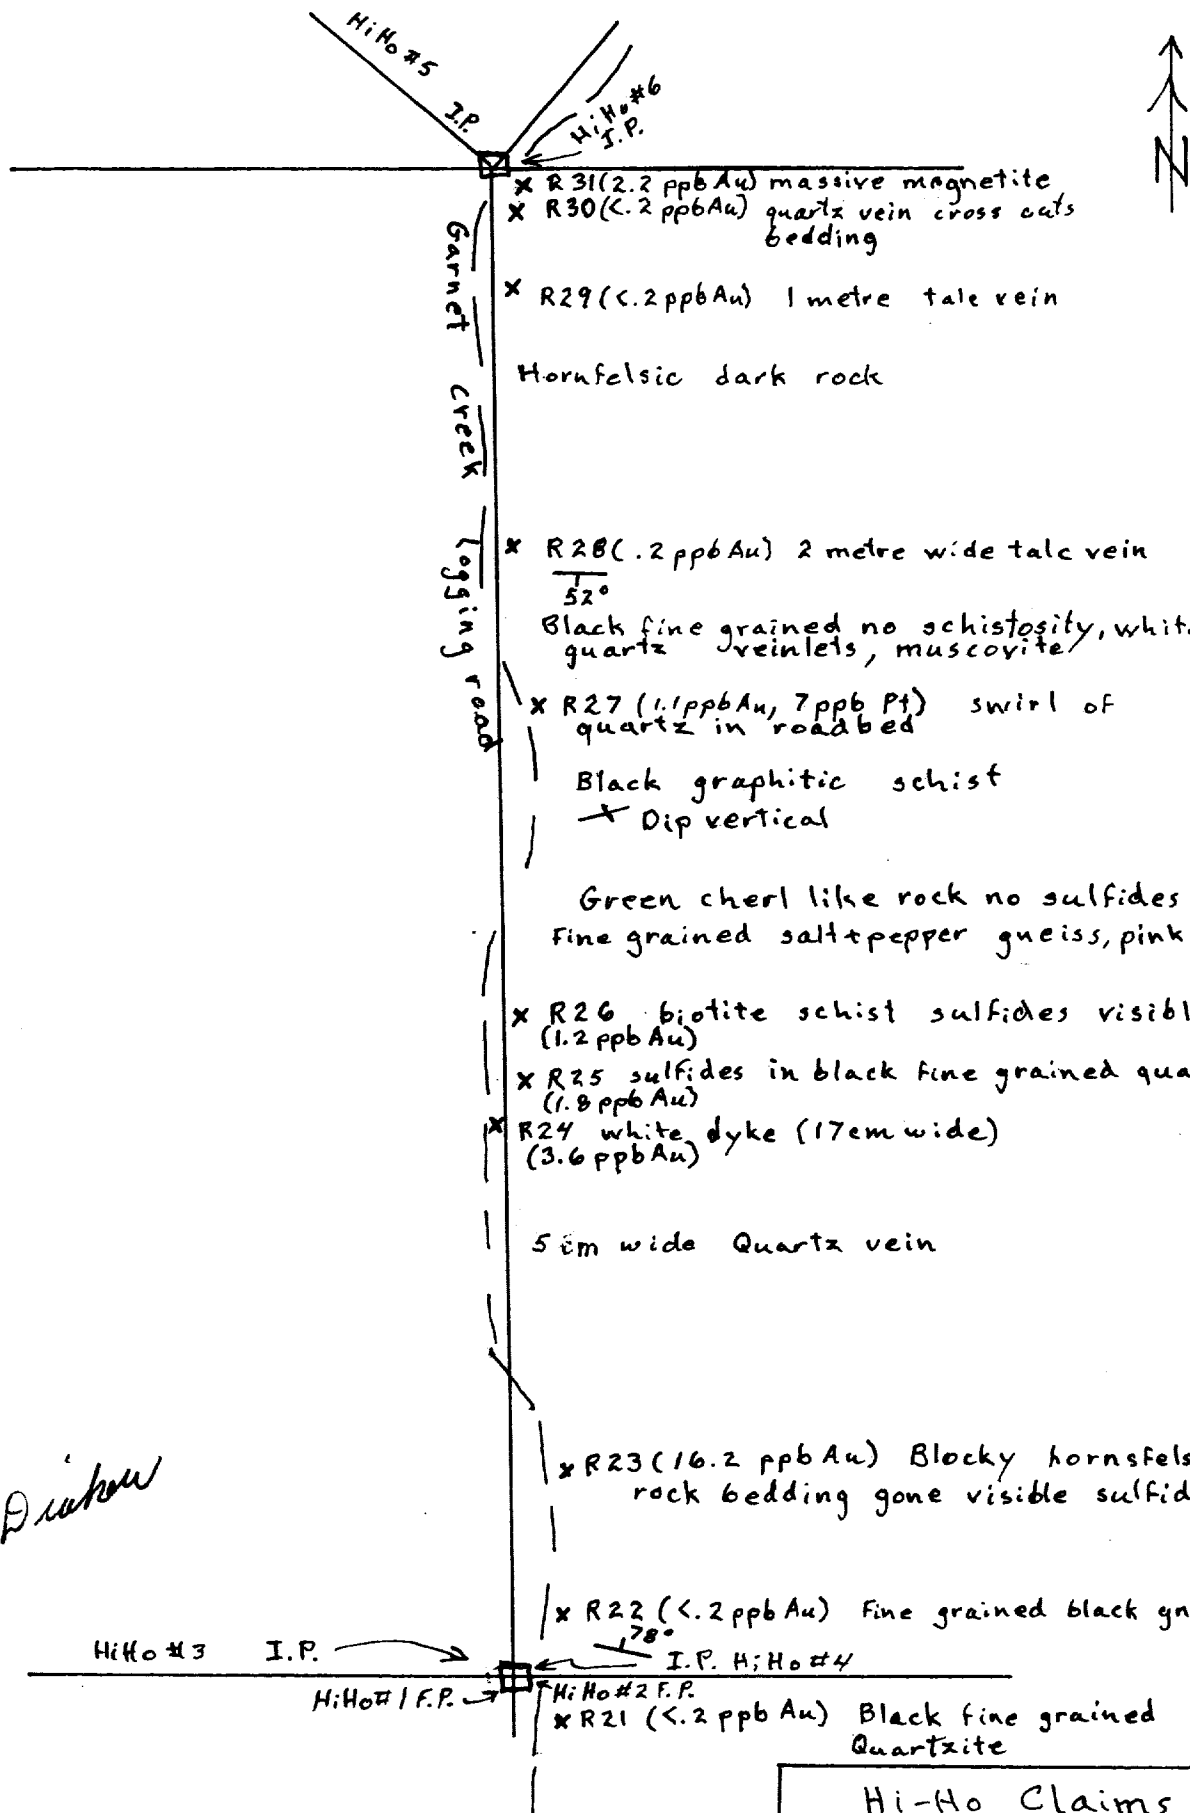 HiHo #5
I.P.
HiHo #6
I.P.
N
R31 (2.2 ppb Au) massive magnetite
R30 (<.2 ppb Au) quartz vein cross cuts
bedding
R29 (<.2 ppb Au) 1 metre talc vein
Garnet Creek Logging road
Hornfelsic dark rock
R28 (.2 ppb Au) 2 metre wide talc vein
52°
Black fine grained no schistosity, whit
quartz veinlets, muscovite
R27 (1.1 ppb Au, 7 ppb Pt) swirl of
quartz in roadbed
Black graphitic schist
Dip vertical
Green chert like rock no sulfides
Fine grained salt + pepper gneiss, pink
R26 biotite schist sulfides visibl
(1.2 ppb Au)
R25 sulfides in black fine grained qua
(1.8 ppb Au)
R24 white dyke (17cm wide)
(3.6 ppb Au)
5 cm wide Quartz vein
R23 (16.2 ppb Au) Blocky hornsfels
rock bedding gone visible sulfid
R22 (<.2 ppb Au) Fine grained black gn
78°
HiHo #3 I.P.
I.P. HiHo #4
HiHo #1 F.P.
HiHo #2 F.P.
R21 (<.2 ppb Au) Black fine grained
Quartzite
Hi-Ho Claims